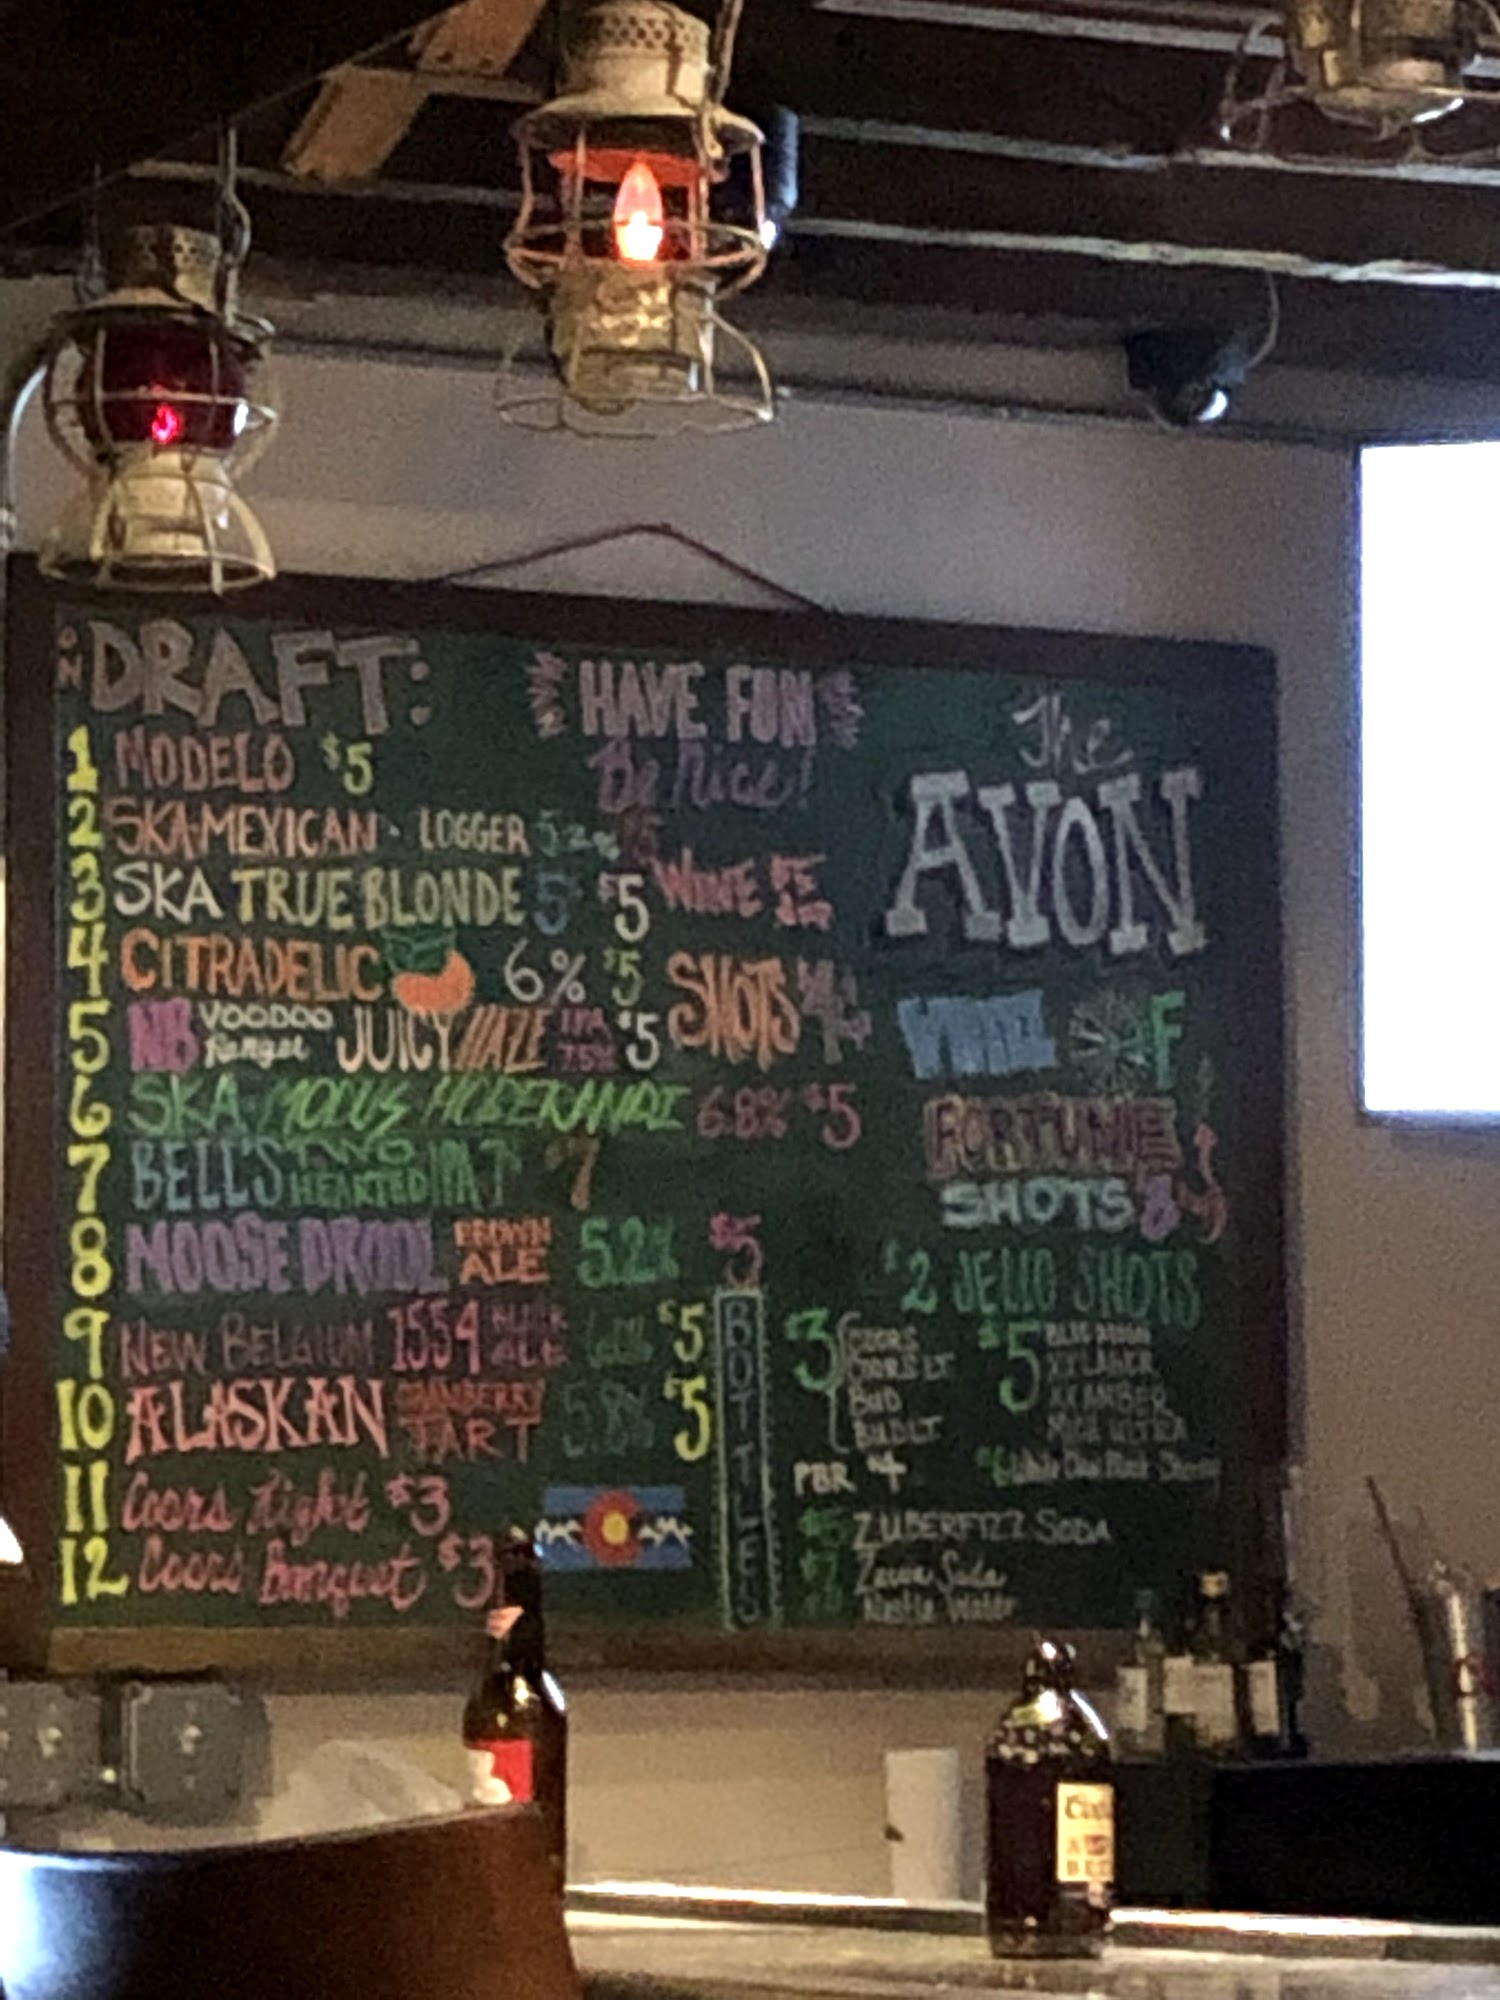 ON DRAFT:
HAVE FUN
Be Nice!
The
AVON
1 MODELO $5
2 SKA-MEXICAN - LOGGER 5.2% $5
3 SKA TRUE BLONDE 5 $5
WINE
4 CITRADELIC 6% $5
SHOTS
5 NB VOODOO Ranger JUICY HAZE IPA 7.5% $5
6 SKA MODUS HOPERANDI 6.8% $5
7 BELL'S TWO HEARTED IPA 7
8 MOOSE DROOL BROWN ALE 5.2% $5
9 NEW BELGIUM 1554 ALE $5
10 ALASKAN CRANBERRY TART 5.8% $5
11 Coors Light $3
12 Coors Banquet $3
OF
FORTUNE
SHOTS
$2 JELLO SHOTS
BOTTLES
3 COORS
COORS LT
BUD
BUD LT
PBR $4
$5 BLUE MOON
XX LAGER
XX AMBER
MICH ULTRA
$5 ZUBERFIZZ SODA
Soda
Nestle Water
Coors